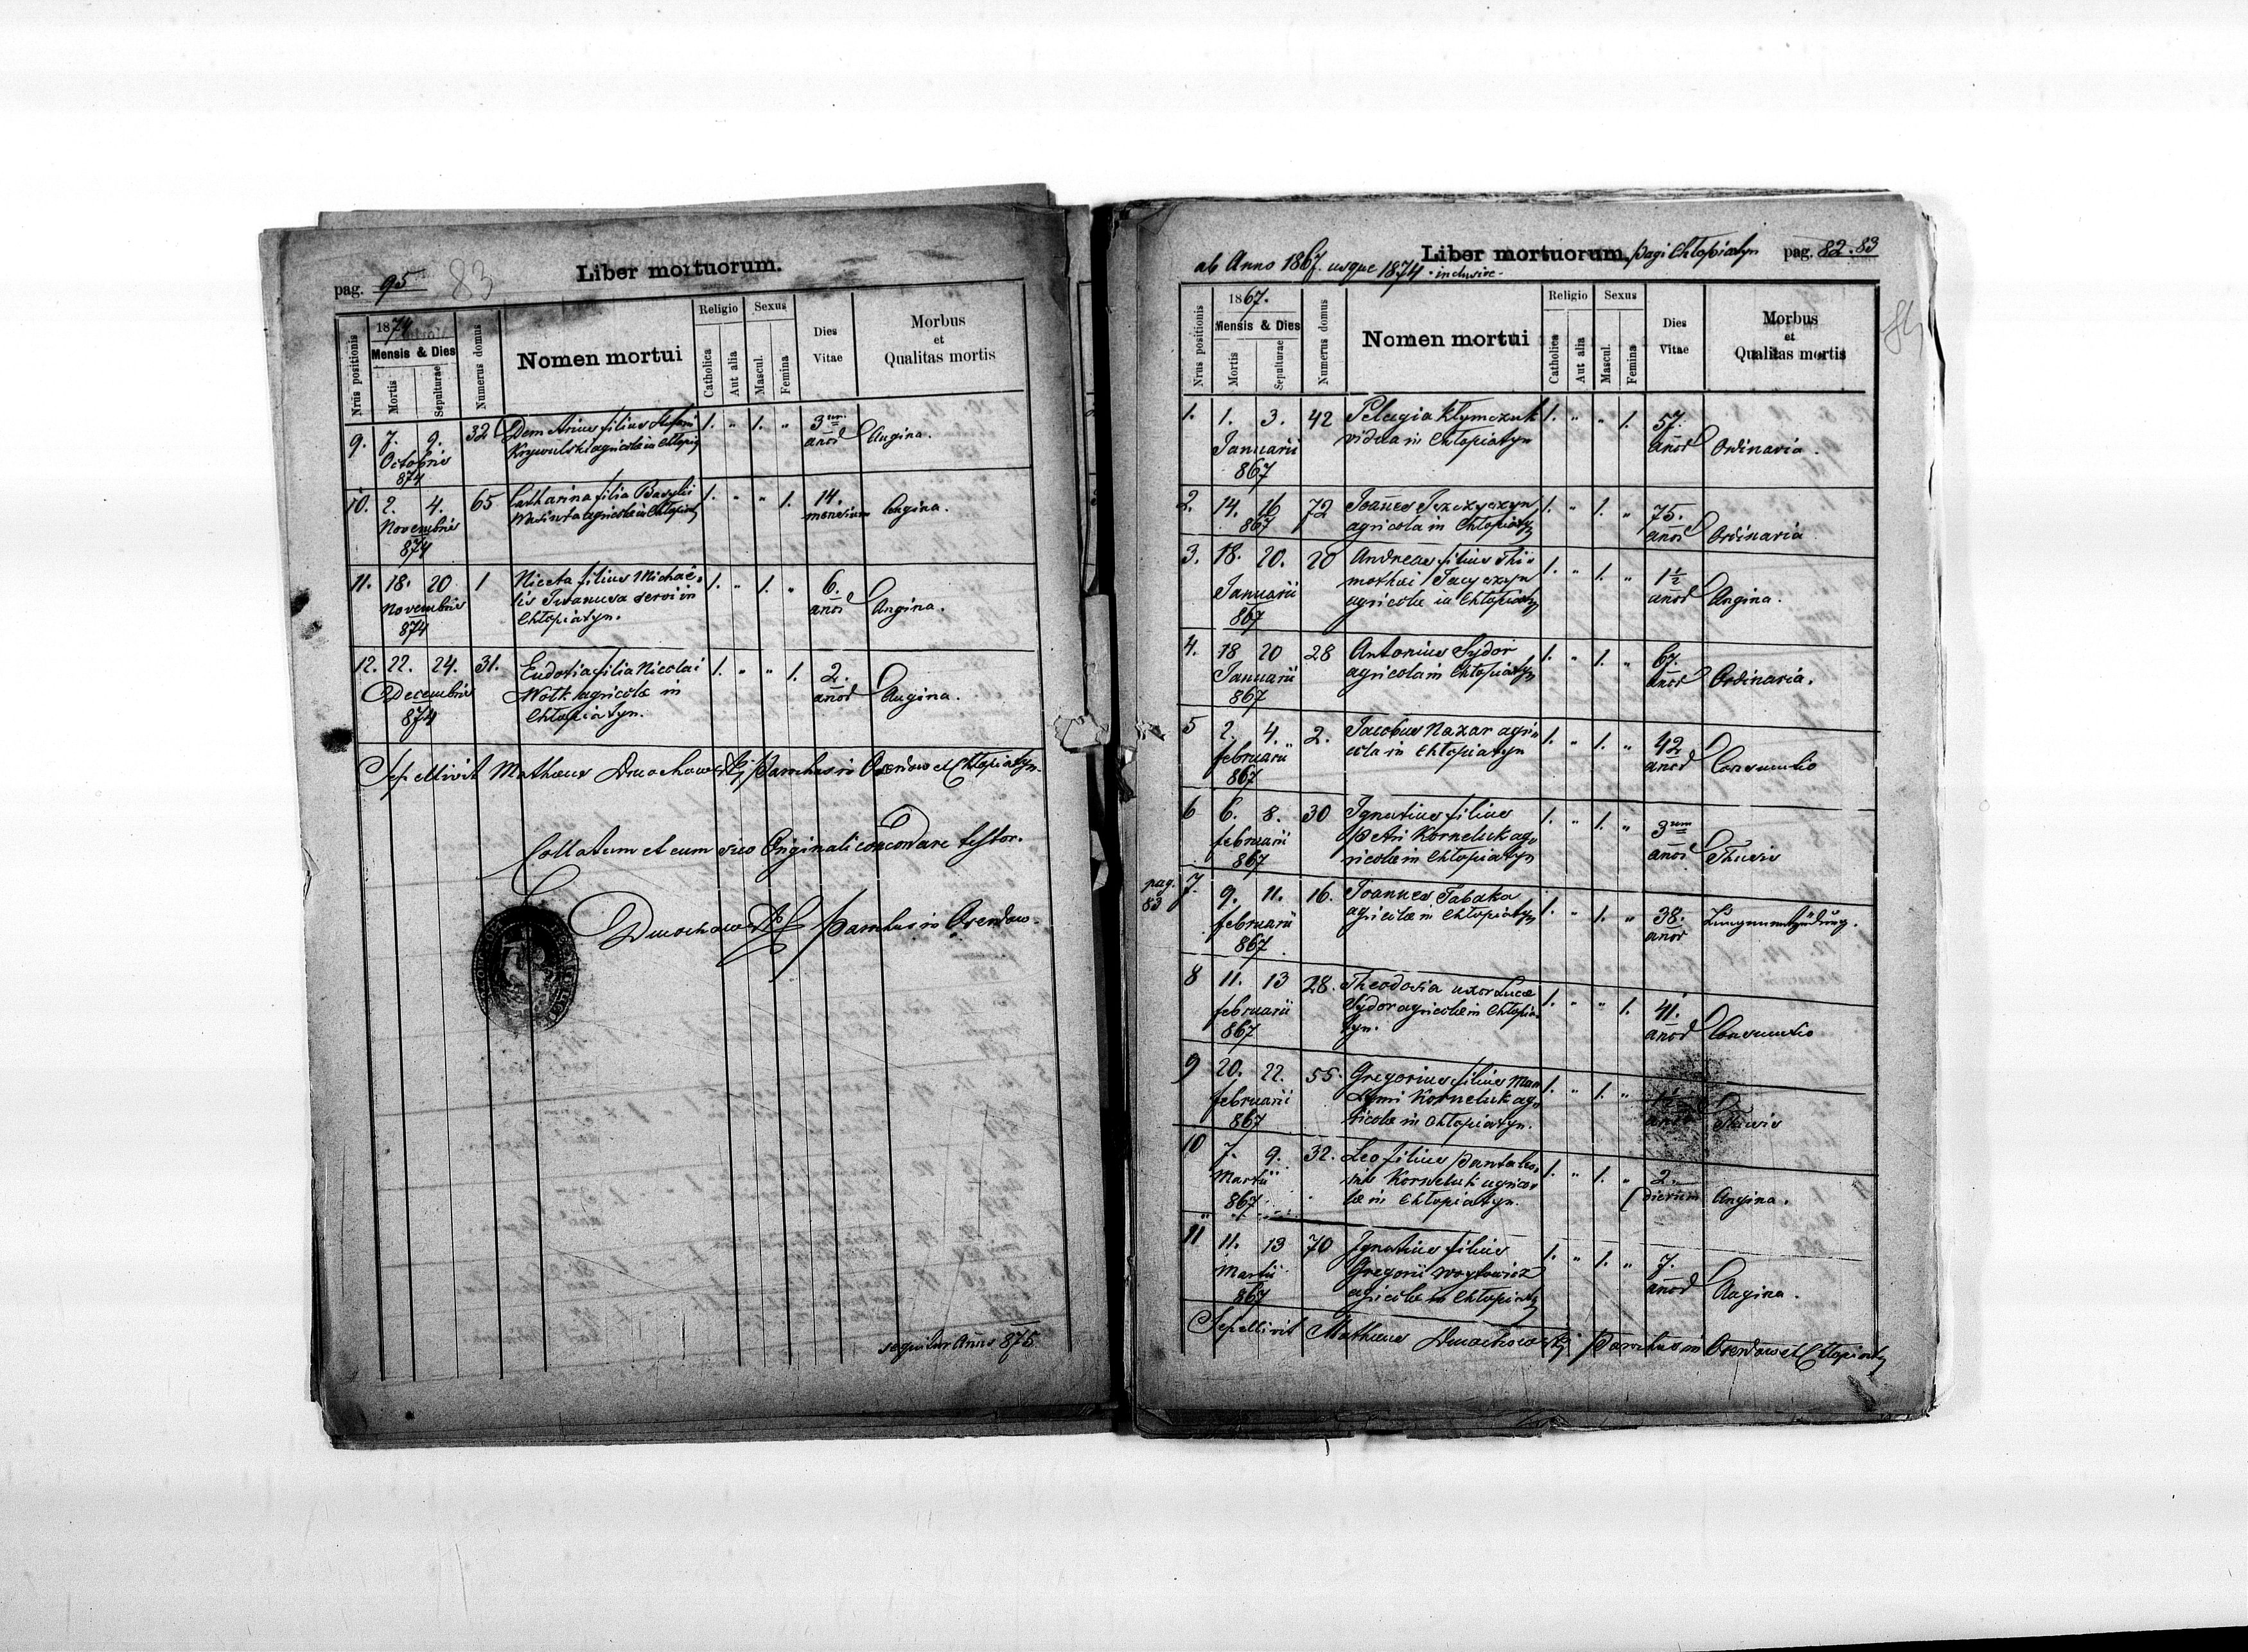 Liber mortuorum.
pag. 95 83
Nrus positionis
1874
Mensis & Dies
Mortis
Sepulturae
Numerus domus
Nomen mortui
Religio
Catholica
Aut alia
Sexus
Mascul.
Femina
Dies
Vitae
Morbus
et
Qualitas mortis
9. 7. 9. 32 Demetrius filius Stefani 1. " 1. " 3um
Octobris Krywulski agricolae in Chłopia anor Angina.
874
10. 2. 4. 65 Catharina filia Basylii 1. " " 1. 14.
Novembris agricolae in Chłopiaty mensium Angina.
874
11. 18. 20 1 Niceta filius Michaë- 1. " 1. " 6.
Novembris lis Iwanusa servi in anor Angina.
874 Chłopiatyn.
12. 22. 24. 31. Eudoxia filia Nicolai 1. " " 1. 2.
Decembris Wołk agricolae in anor Angina.
874 Chłopiatyn.
Sepellivit Matheus Dmochowski Parochus in Oserdow et Chłopiatyn.
Collatum et cum suo Originali concordare testor.
Dmochowski Parochus in Oserdow.
sequitur Annus 875
Liber mortuorum. pagi Chłopiatyn pag. 82. 83
ab Anno 1867. usque 1874 inclusive
84
Nrus positionis
1867.
Mensis & Dies
Mortis
Sepulturae
Numerus domus
Nomen mortui
Religio
Catholica
Aut alia
Sexus
Mascul.
Femina
Dies
Vitae
Morbus
et
Qualitas mortis
1. 1. 3. 42 Pelagia Kłymczuk 1. " " 1. 57.
Januarii vidua in Chłopiatyn anor Ordinaria.
867
2. 14. 16 72 Joannes 1. " 1. " 75.
867 agricola in Chłopiaty anor Ordinaria
3. 18. 20. 20 Andreas filius Thi- 1. " 1. " 1½
Januarii mothei agricolae in Chłopiaty anor Angina.
867
4. 18 20 28 Antonius Sydor 1. " 1. " 67.
Januarii agricola in Chłopiatyn anor Ordinaria.
867
5 2. 4. 2. Jacobus Nazar agri- 1. " 1. " 42
februarii cola in Chłopiatyn anor Consumtio
867
6 6. 8. 30 Ignatius filius 1. " 1. " 3um
februarii Petri Korneluk ag- anor Thusis
867 ricolae in Chłopiatyn
pag. 83
7. 9. 11. 16. Joannes Tabaka 1. " 1. " 38.
februarii agricola in Chłopiatyn anor Lungenentzündung.
867
8 11. 13 28. Theodosia uxor Lucae 1. " " 1. 41.
februarii Sydor agricolae in Chłopia- anor Consumtio
867 tyn.
9 20. 22. 55. Gregorius filius Max- 1. " 1. " 1½
februarii ymi Korneluk ag- anor Thusis
867 ricolae in Chłopiatyn.
10 7. 9. 32. Leo filius Pantaleo- 1. " 1. " 2.
Martii nis Korneluk agrico- dierum Angina.
867 lae in Chłopiatyn.
11 11. 13 70 Ignatius filius 1. " 1. " 7.
Martii Gregorii Woytowicz anor Angina.
867 agricolae in Chłopiaty
Sepellivit Matheus Dmochowski Parochus in Oserdow et Chłopiaty